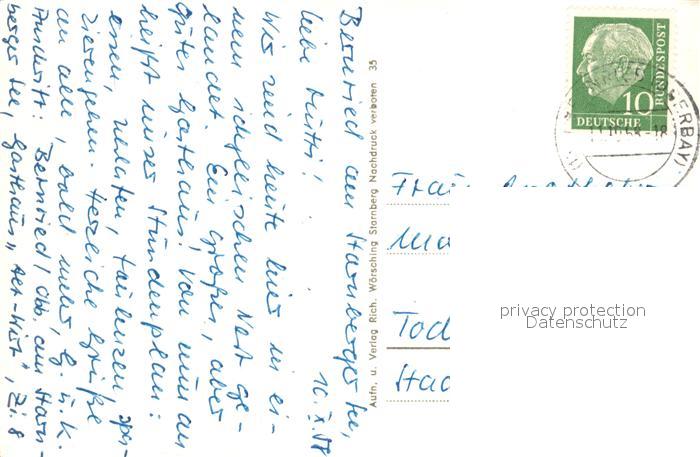 Bernried am Starnberger See,
10.X.58
Liebe Mutti!
Wir sind heute hier in ei-
nem idyllischen Nest ge-
landet. Ein großes, aber
gutes Gasthaus! Von nun an
heißt unser Stundenplan:
essen, schlafen, faulenzen, spa-
zierengehen. Herzliche Grüße
an alle, bald mehr, G. u. K.
Anschrift: Bernried/Obb. am Starn-
berger See, Gasthaus "Alt-Wirt", Zi. 8
Aufn. u. Verlag Rich. Wörsching Starnberg Nachdruck verboten 35
DEUTSCHE
BUNDESPOST
10
ERBAY)
-18
Frau
Ma
Tod
Had
privacy protection
Datenschutz